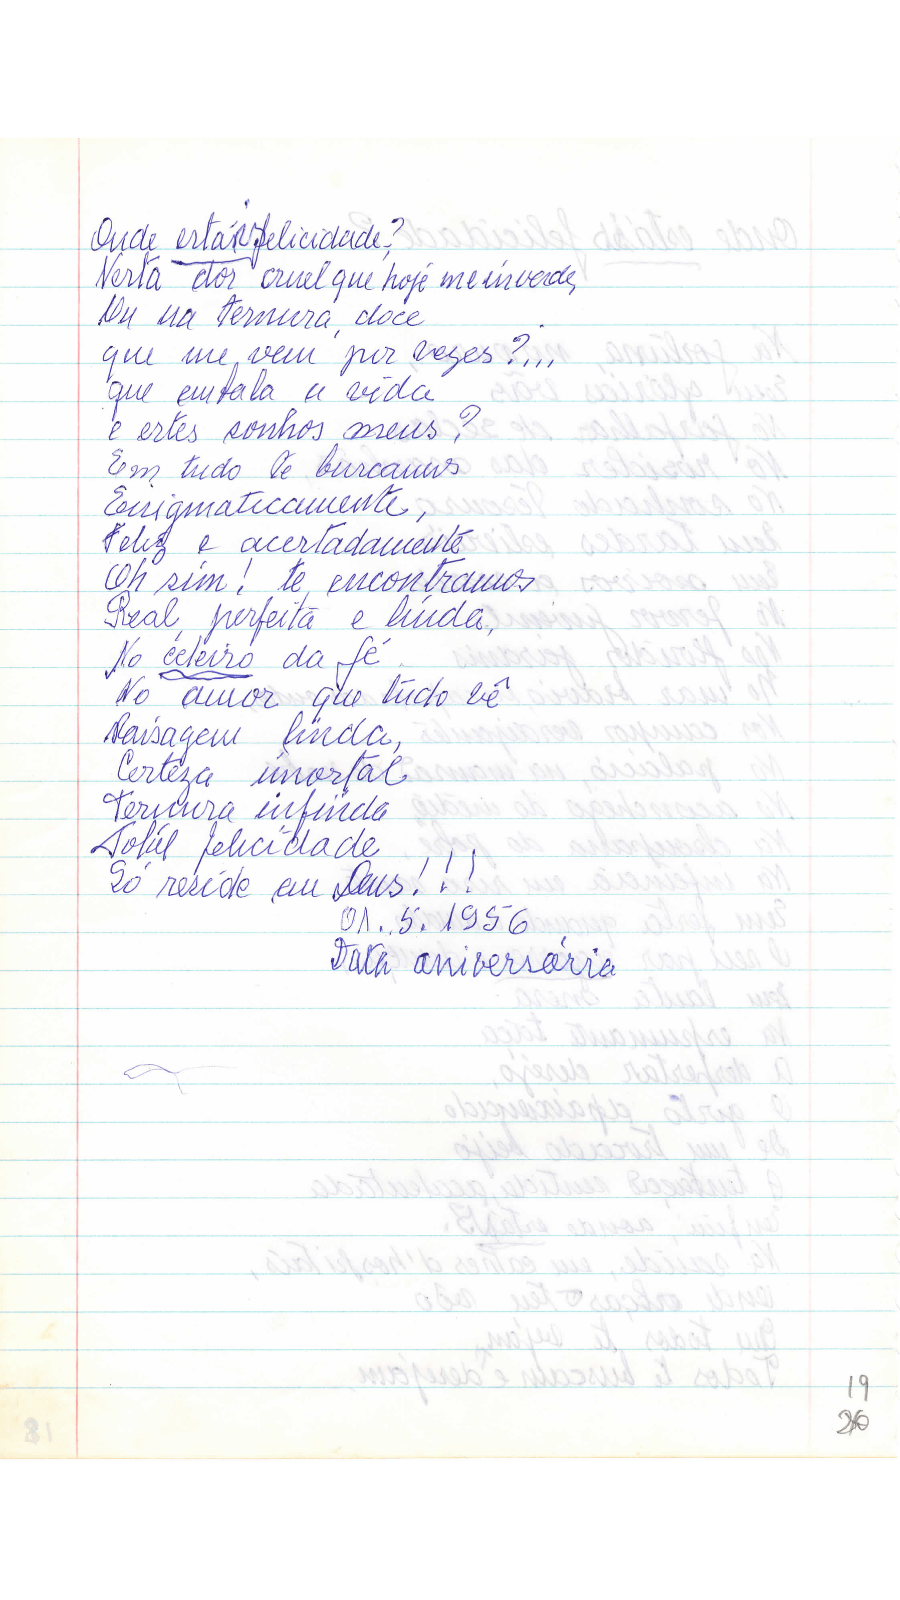 Onde estás felicidade?
Nesta dor cruel que hoje me invade,
Ou na ternura, doce
que me vem por vezes?...
que embala a vida
e estes sonhos meus?
Em tudo te buscamos
Enigmaticamente,
Feliz e acertadamente
Oh sim! te encontramos
Real, perfeita e linda,
No celeiro da fé
No amor que tudo vê
Paisagem linda,
Certeza imortal
Ternura infinda
felicidade
Só reside em Deus!!!
01.5.1956
Data aniversária
19